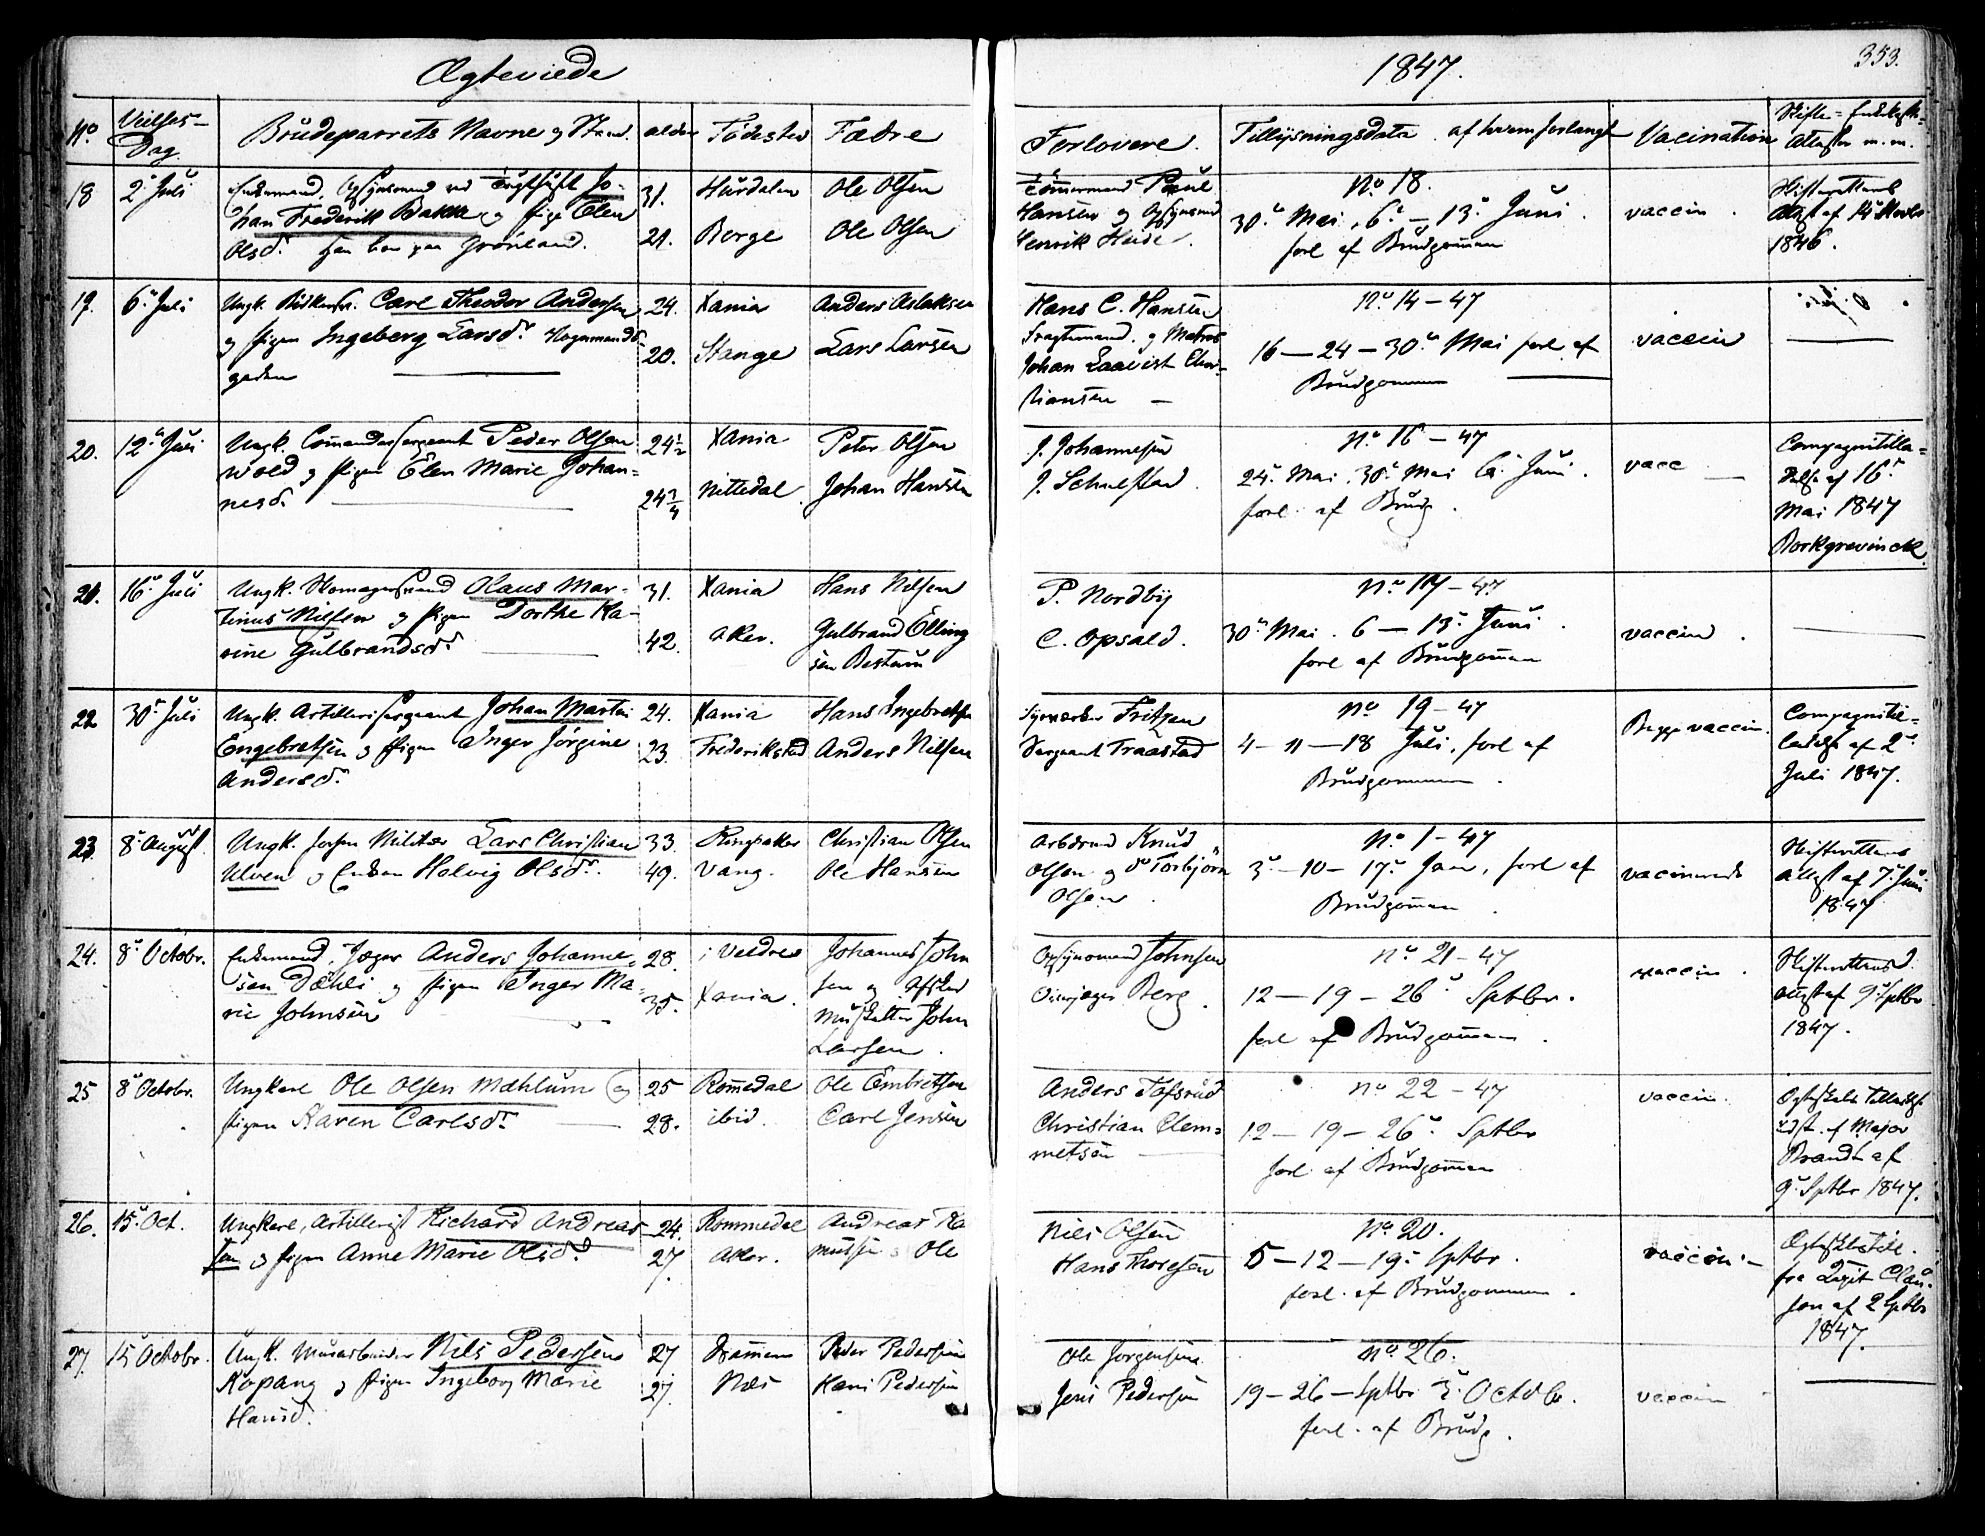 Ægteviede
1847.
353.
No
Vielses-
Dag.
Brudeparrets Navne og Stand.
alder
Födested
Fædre
Forlovere.
Tillijsningsdata. af hvem forlangt
Vacination
Skifte = Enkefeh-
Attester m. m.
18
2. Juli
Enkemand, Opsynsmand ved Jo-
han Frederik Bakke og Pigen Elen
Olsd. han boe paa Grönland.
31.
21.
Hurdalen
Borge
Ole Olsen
Ole Olsen
Tömmermand Poul
Hansen og Opsynsmd
Henrik Heide.
No 18.
30. Mai, 6. – 13. Juni.
forl af Brudgommen
vaccin.
Skifterettens
Attest af
1846.
19.
6. Juli
Ungk. Carl Theodor Andersen
og Pigen Ingeberg Larsd.
gaden
24.
20.
Xania
Stange
Anders Aslaksen
Lars Larsen
Hans C. Hansen
Fragtemand. og Matros
Johan Chri-
stiansen –
No 14 – 47
16 – 24 – 30. Mai forl. af
Brudgommen
vaccin
20.
12. Juli
Ungk. Commandersergeant Peder Olsen
Wold og Pigen Elen Marie Johan-
nesd.
24 1/2
24 3/4
Xania
Nittedal.
Peter Olsen
Johan Hansen
J. Johannesen
J. Schulstad.
No 16 – 47
24. Mai, 30. Mai 6. Juni.
forl. af Brudg.
vacc
Compagnitilla-
delse af 16.
Mai 1847
Borkgrevinck
21.
16. Juli
Ungk. Skomagersvend Olaus Mar-
tinus Nilsen og Pigen Dorthe Ka-
rine Gulbrandsd.
31.
42.
Xania
Aker.
Hans Nilsen
Gulbrand Elling
sen Bestum
P. Nordby
C. Opsald.
No 17 – 47
30. Mai. 6 – 13. Juni.
forl af Brudgommen
vaccin.
22
30. Juli
Ungk. Artillerisergeant Johan Martin
Engebretsen og Pigen Inger Jörgine
Andersd.
24.
23.
Xania
Frederikstad
Hans Ingebretsen
Anders Nilsen
Fritzen
Sergeant Traastad
No 19 – 47
4 – 11 – 18 Juli, forl af
Brudgommen.
Begge vaccin.
Compagnitil-
ladelse af 2.
Juli 1847.
23
8. August.
Ungk. Lars Christian
Ulven og Enken Helvig Olsd.
33.
49.
Ringsaker
Vang.
Christian Olsen
Ole Hansen
Arbdsmd Knud
Olsen og do Torbjörn
Olsen.
No 1 – 47
3. – 10 – 17. Jan, forl af
Brudgommen.
vaccinerede
Skifterettens
Attest af 7. Juni
1847
24.
8. Octobr.
Enkemand, Jæger Anders Johanne-
sen Dæhli og Pigen Inger Ma-
rie Johnsen
28.
35.
i Veldre
Xania.
Johannes John
sen og Afsked
Muskatter John
Larsen.
Opsynsmand Johnsen
Berg.
No 21 – 47
12 – 19 – 26. Sptbr.
forl af Brudgommen.
vaccin.
Skifterettens
attest af 9. Sptbr
1847.
25
8 Octobr.
Ungkarl Ole Olsen Mæhlum og
Pigen Karen Carlsd.
25
28.
Rommedal
ibid.
Ole Embretsen
Carl Jensen
Anders Tofsrud
Christian Clem-
metsen
No 22 – 47
12 – 19 – 26. Sptbr
forl. af Brudgommen
vaccin.
af Major
Brandt af
9. Sptbr 1847.
26.
15. Oct.
Ungkarl, Artillerist Richard Andreas
sen og Pigen Anne Marie Olsd.
24.
27.
Rommedal
Aker.
Andreas Ra
mussen Ole
Niels Olsen
Hans Thoresen
No 20.
5 – 12 – 19. Sptbr.
forl. af Brudgommen.
vaccin. –
fra Clau-
sen af 2 Sptbr
1847.
27.
15 Octobr.
Ungk. Murarbeider Nils Pedersen
Kopang og Pigen Ingeborg Marie
Hansd.
27
27.
Drammen
Næs
Peder Pedersen
Hans Pedersen
Ole Jorgensen
Jens Pedersen
No 26.
19 – 26 – Sptbr 3. Octobr.
forl. af Brudg.
vaccin